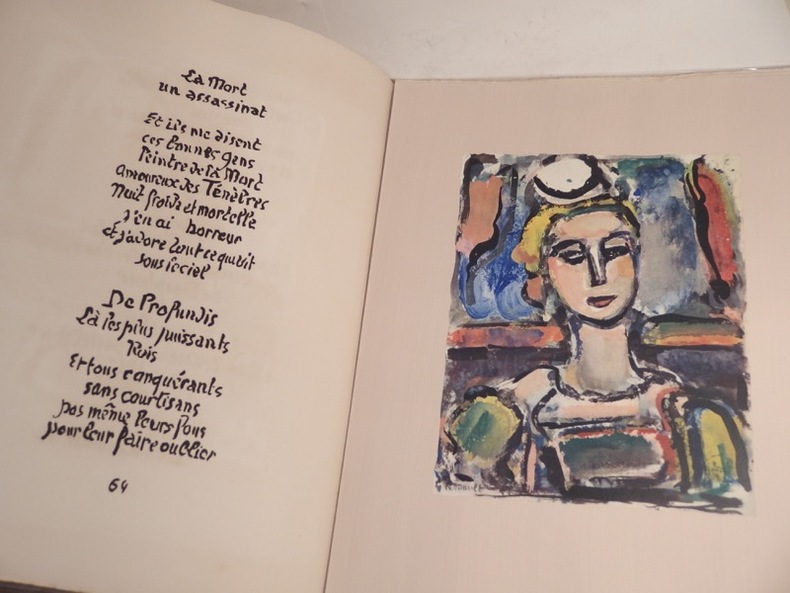 La Mort
un assassinat
Et ils me disent
ces bonnes gens
Peintre de la Mort
amoureux des Ténèbres
Nuit froide et mortelle
J'en ai horreur
et j'adore tout ce qui vit
sous le ciel
De Profundis
Là les plus puissants
Rois
Et tous conquérants
sans courtisans
pas même leurs fous
pour leur faire oublier
64